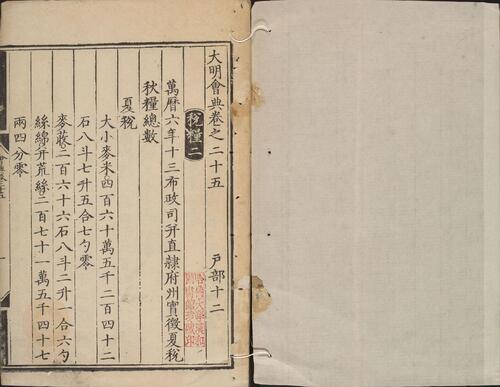 大明會典卷之二十五 戶部十二
稅糧二
萬曆六年十三布政司并直隸府州實徵夏稅
秋糧總數
夏稅
大小麥米四百六十萬五千二百四十二
石八斗七升五合七勺零
麥蕎二百六十六石八斗二升一合六勺
絲綿并荒絲二百七十一萬五千四十七
兩四分零